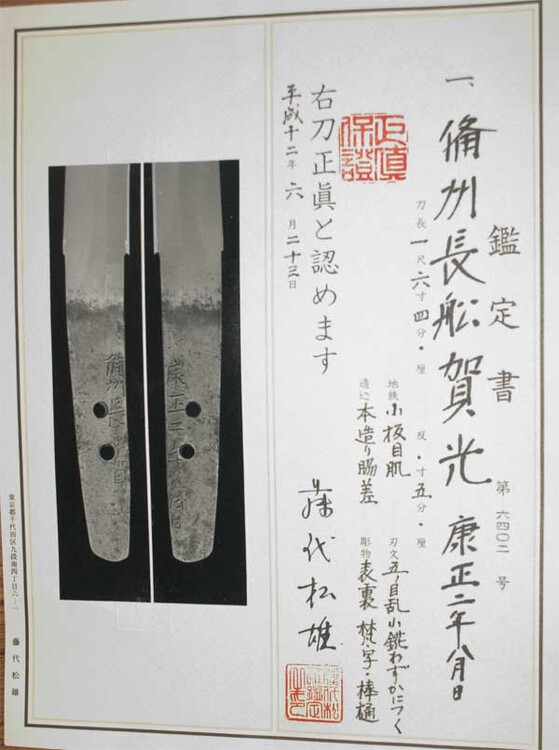 鑑定書 第六四〇二号
一、備州長舩賀光 康正二年八月日
刀長 一尺六寸四分・厘 反・寸五分・厘
地鉄 小板目肌 刃文 五ノ目乱小錵わずかにつく
造込 本造り脇差 彫物 表裏 梵字・棒樋
正眞保證
右刀正眞と認めます
平成十二年六月二十三日
藤代松雄
備州長
康正
東京都千代田区九段南四丁目六ノ一 藤代松雄